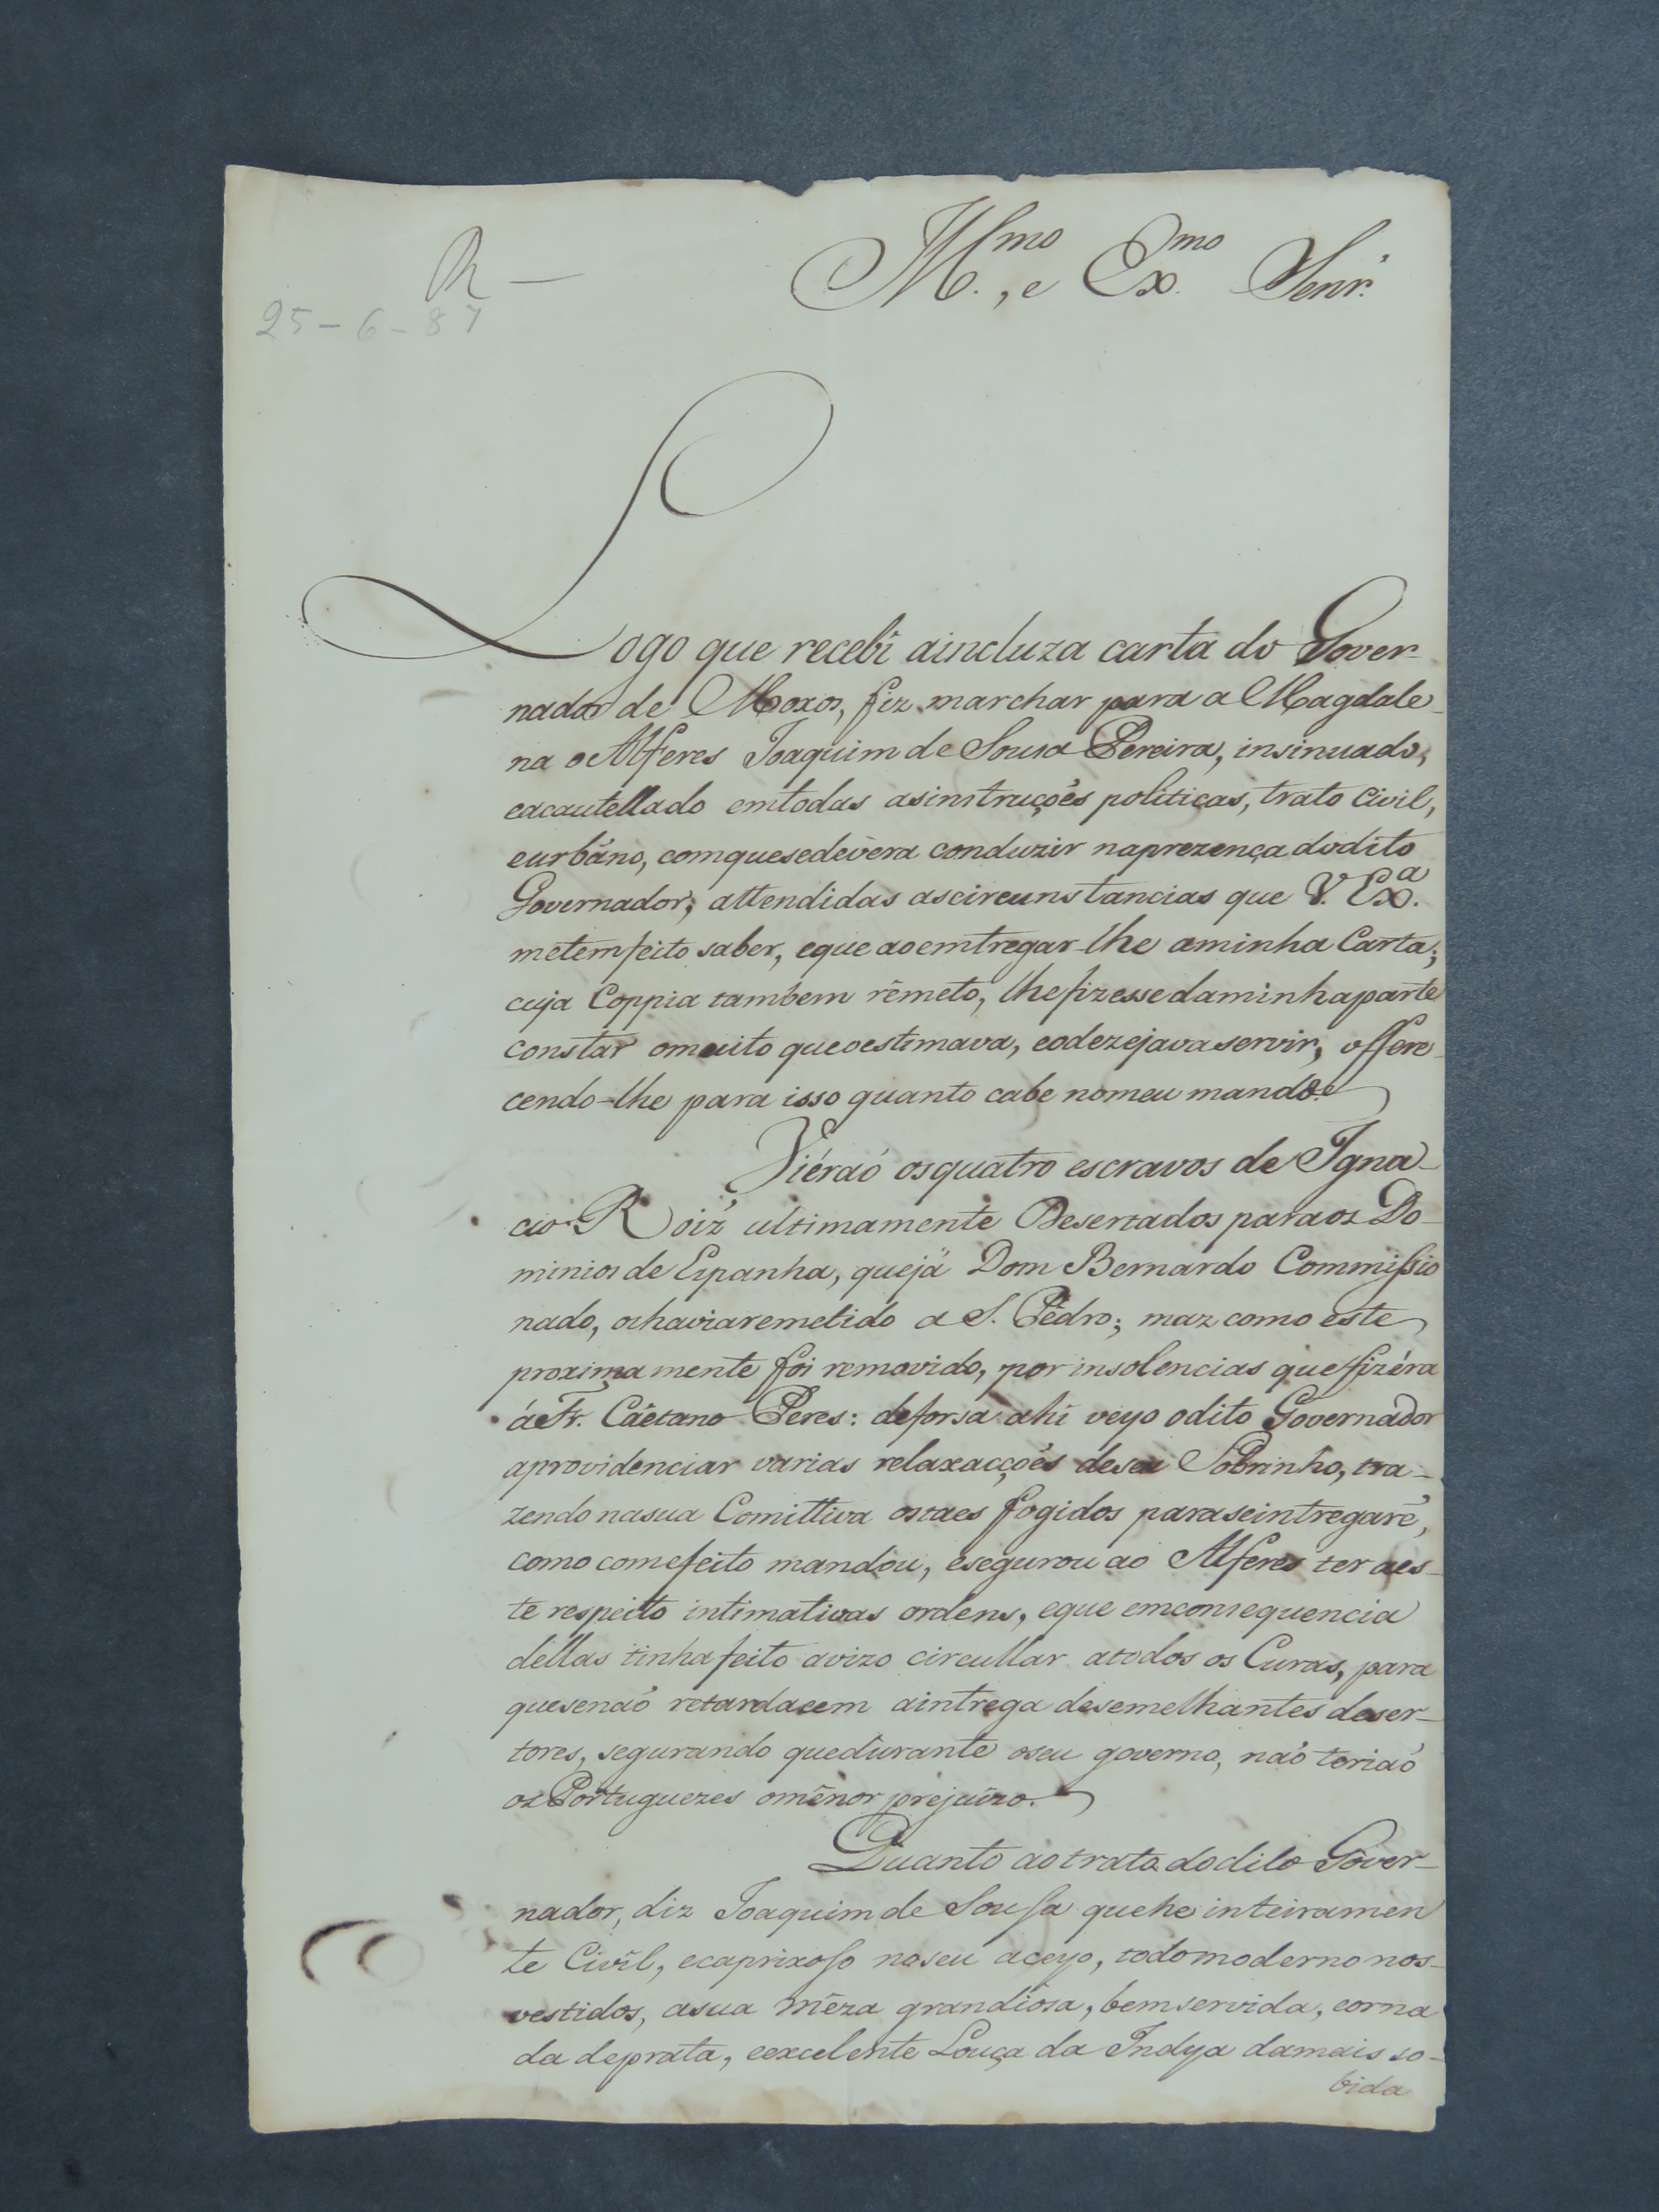 R —
Ill.mo, e Ex.mo Senr.
25-6-87
Logo que recebi aincluza carta do Gover-
nador de Moxos, fiz marchar para a Magdale-
na o Alferes Joaquim de Sousa Pereira, insinuado,
eacautellado emtodas asinstruções politicas, trato civil,
eurbáno, comquesedevera conduzir naprezença dodito
Governador, attendidas ascircunstancias que V. Exa.
metemfeito saber, eque aoemtregar-lhe aminha Carta;
cuja Coppia tambem rêmeto, lhefizessedaminhaparte
constar omuito queoestimava, eodezejavaservir, offere-
cendo-lhe para isso quanto cabe nomeu mando.
Viéraó osquatro escravos de Igna-
cio Roiz' ultimamente Desertados paraos Do-
minios de Espanha, quejá Dom Bernardo Commissio
nado, oshaviaremetido a S. Pêdro; maz como este
proximamente foi removido, por insolencias quefizéra
áFr. Cäetano Peres: deforsa ahi veyo odito Governador
aprovidenciar varias relaxacções deseu Sobrinho, tra-
zendo nasua Comittiva ostaes fogidos paraseintregarẽ,
como comefeito mandou, esegurou ao Alferes ter aes-
te respeito intimativas ordens, eque emconsequencia
déllas tinhafeito avizo circullar atodos os Curas, para
quesenaó retardacem aintrega desemelhantes deser-
tores, segurando quedurante oseu governo, naó teriaó
os Portuguezes omenor prejuizo.
Quanto aotrato dodito Gover-
nador, diz Joaquim de Sousa quehe inteiramen
te Civil, ecaprixoso noseu aceyo, todomoderno nos-
vestidos, asua mêza grandiosa, bemservida, eorna
da deprata, eexcelente Louça da Indya damais so-
bida